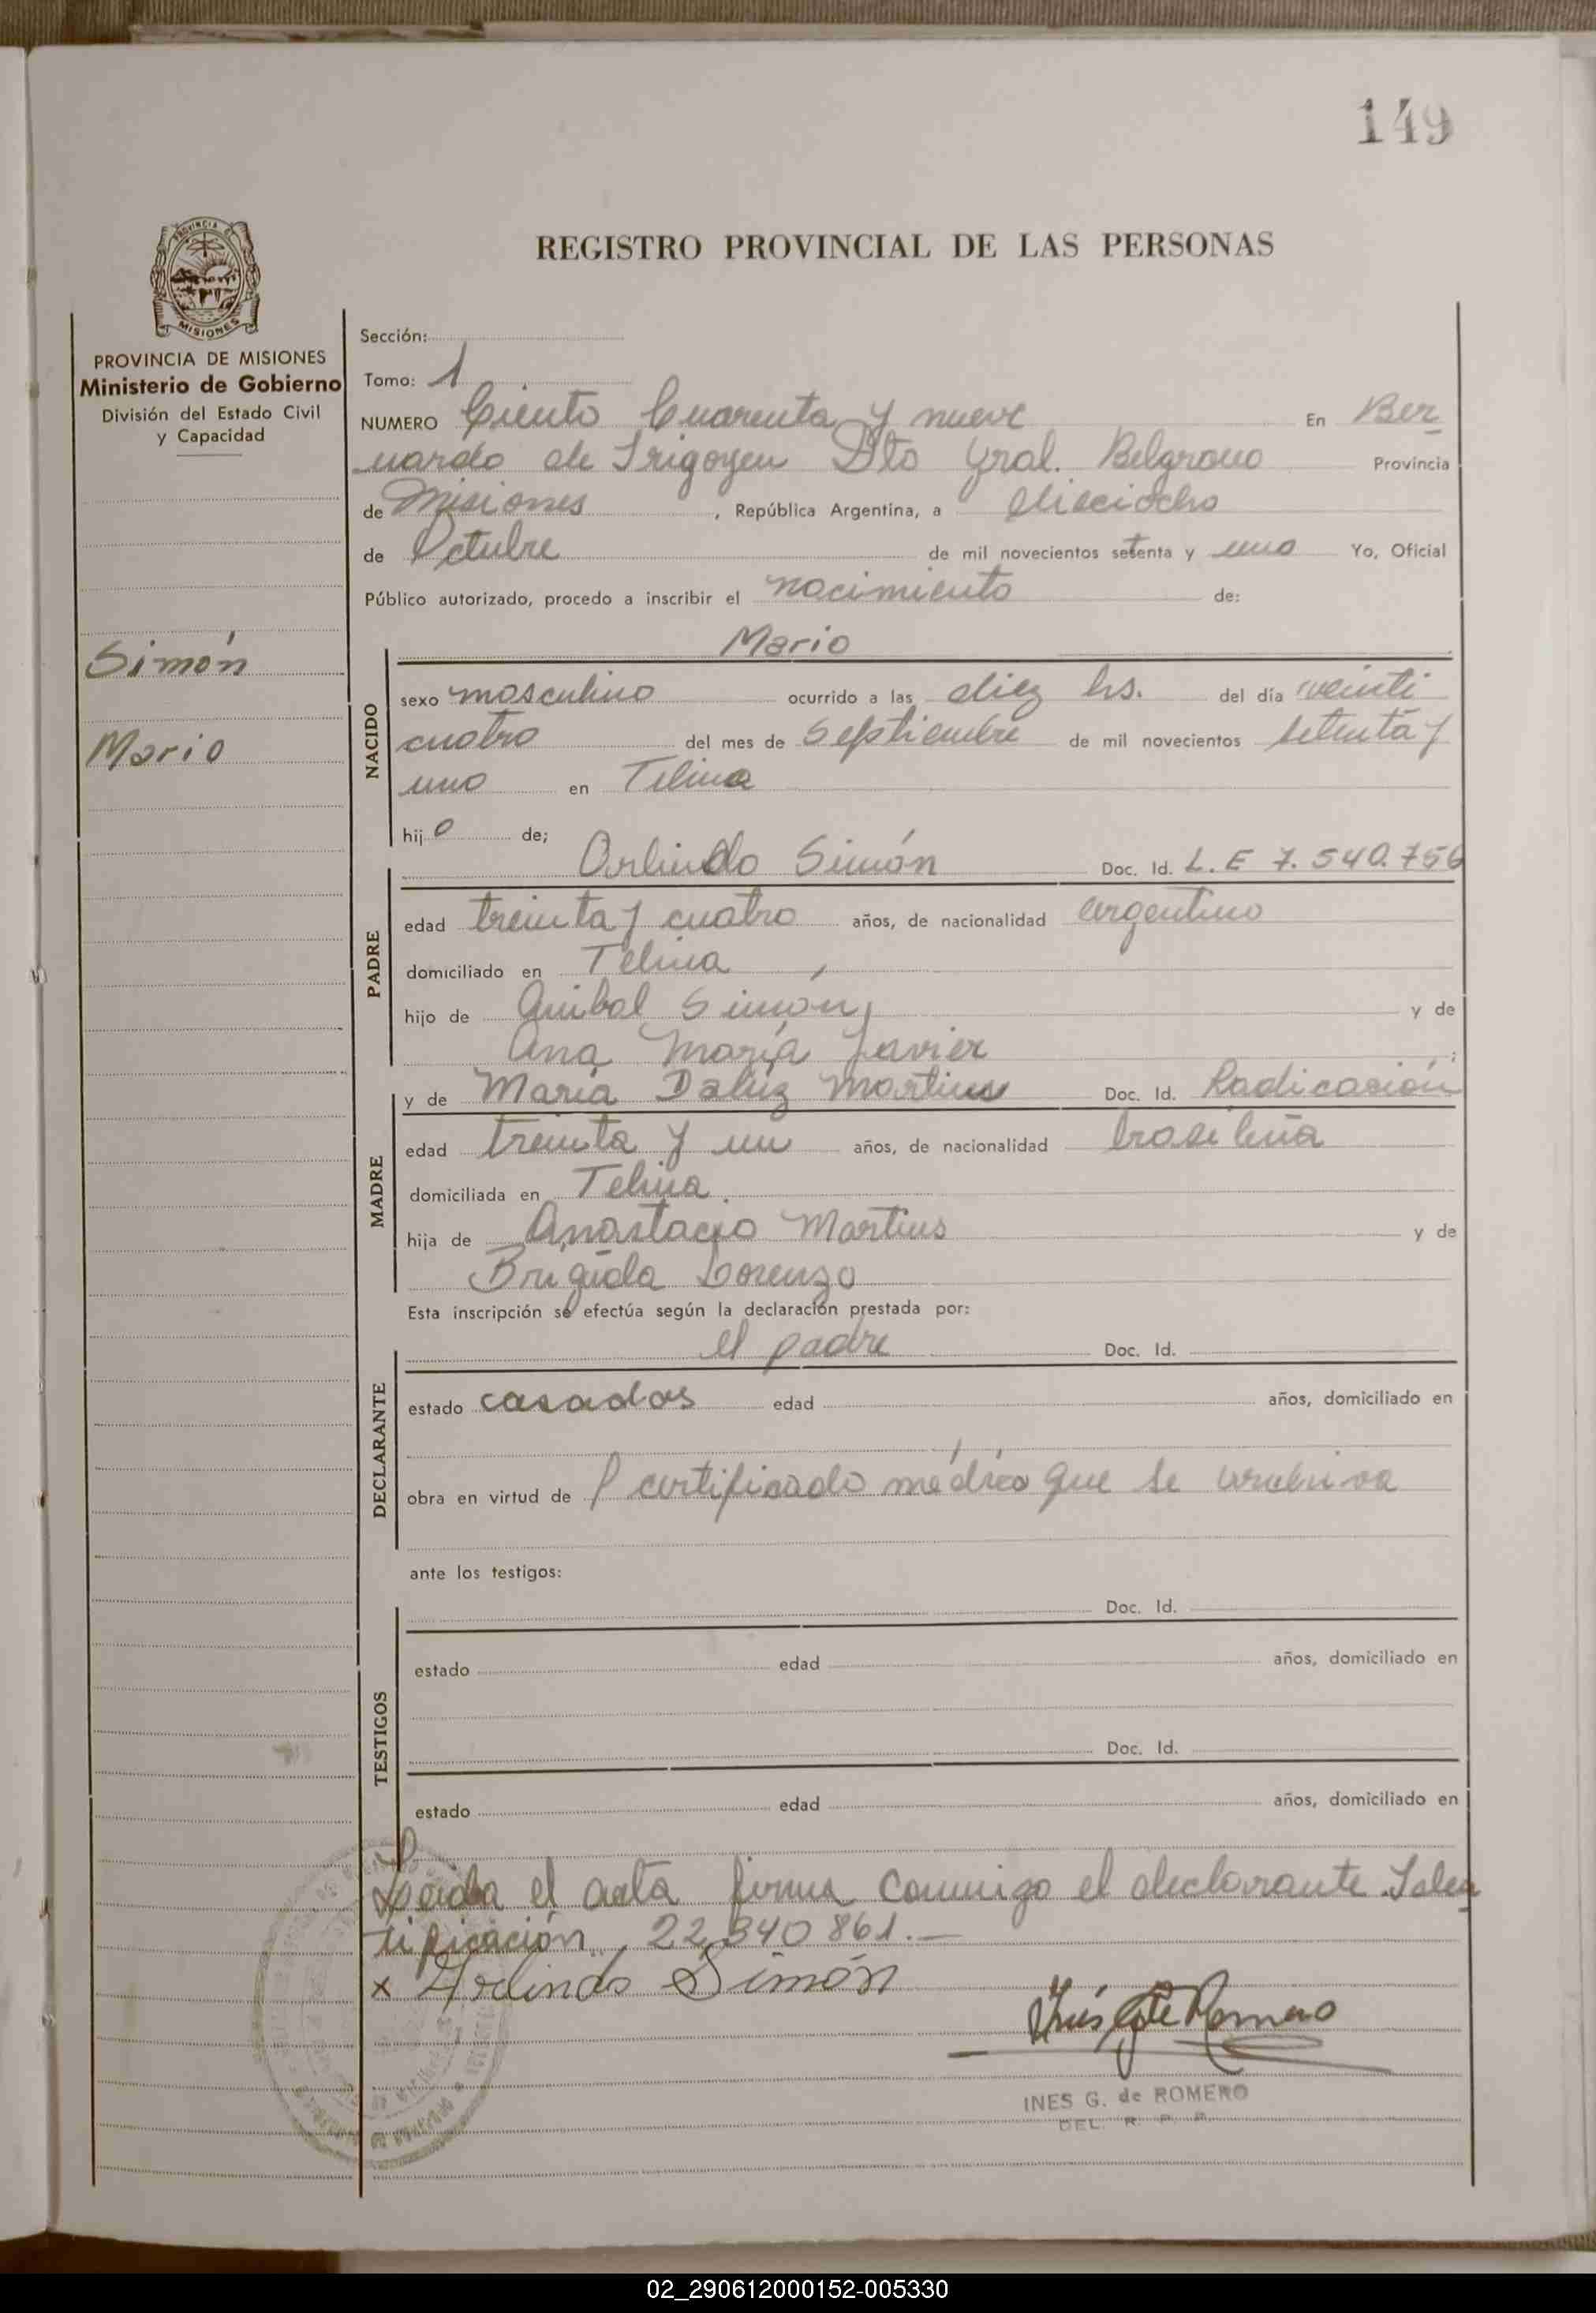 149
REGISTRO PROVINCIAL DE LAS PERSONAS
PROVINCIA DE MISIONES
Ministerio de Gobierno
División del Estado Civil
y Capacidad
Simón
Mario
Sección:
Tomo: 1
NUMERO Ciento Cuarenta y nueve En Ber
nardo de Irigoyen Dto Gral. Belgrano Provincia
de Misiones, República Argentina, a dieciocho
de Octubre de mil novecientos setenta y uno Yo, Oficial
Público autorizado, procedo a inscribir el nacimiento de:
Mario
NACIDO
sexo masculino ocurrido a las diez hs. del día veinti
cuatro del mes de Septiembre de mil novecientos setenta y
uno en Telina
hijo de;
Orlindo Simón Doc. Id. L.E 7.540.756
PADRE
edad treinta y cuatro años, de nacionalidad argentino
domiciliado en Telina,
hijo de Anibal Simón, y de
Ana María Javier;
y de María Daluz Martins Doc. Id. Radicación
MADRE
edad treinta y un años, de nacionalidad brasileña
domiciliada en Telina.
hija de Anastacio Martins y de
Brigida Lorenzo
Esta inscripción se efectúa según la declaración prestada por:
el padre Doc. Id.
DECLARANTE
estado casados edad años, domiciliado en
obra en virtud de certificado médico que se archiva
ante los testigos:
Doc. Id.
TESTIGOS
estado edad años, domiciliado en
Doc. Id.
estado edad años, domiciliado en
Leida el acta firma conmigo el declarante. Iden
tificación, 22.340861.—
x Orlindo Simón
INES G. de ROMERO
DEL. R. P. P.
02_290612000152-005330